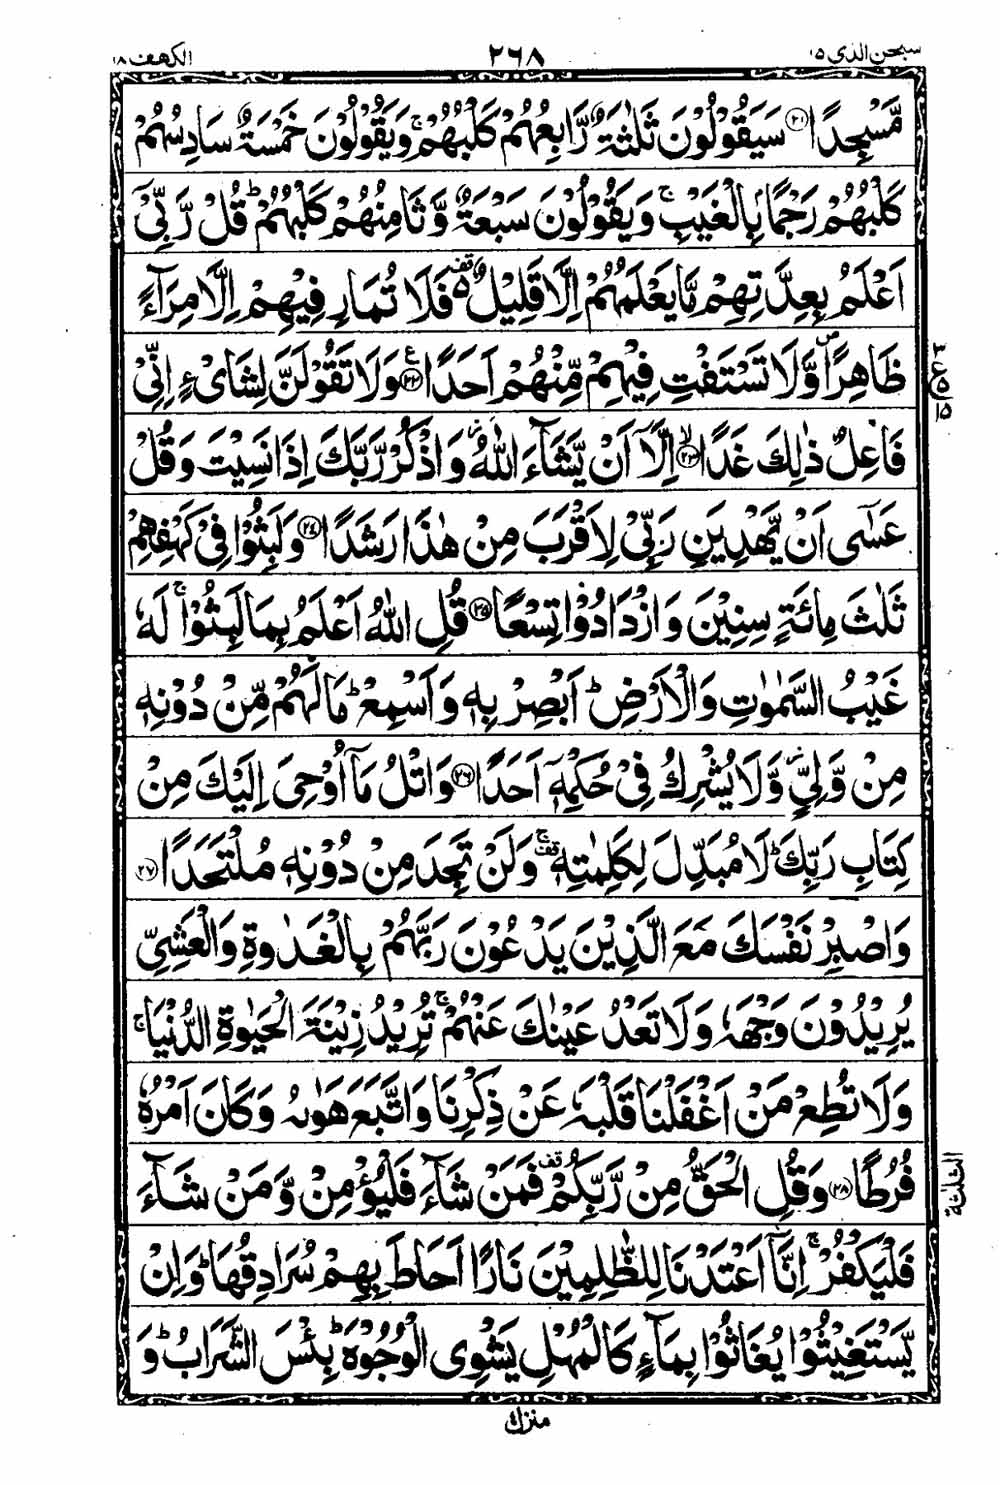 سبحن الذی ۱۵ ۲۶۸ الکھف ۱۸
مَّسْجِدًا ۲۱ سَيَقُوْلُوْنَ ثَلٰثَةٌ رَّابِعُهُمْ كَلْبُهُمْ ۚ وَيَقُوْلُوْنَ خَمْسَةٌ سَادِسُهُمْ
كَلْبُهُمْ رَجْمًۢا بِالْغَيْبِ ۚ وَيَقُوْلُوْنَ سَبْعَةٌ وَّثَامِنُهُمْ كَلْبُهُمْ ؕ قُلْ رَّبِّیْۤ
اَعْلَمُ بِعِدَّتِهِمْ مَّا يَعْلَمُهُمْ اِلَّا قَلِيْلٌ ۵ قف فَلَا تُمَارِ فِيْهِمْ اِلَّا مِرَآءً
ظَاهِرًا ص وَّلَا تَسْتَفْتِ فِيْهِمْ مِّنْهُمْ اَحَدًا ع ۲۲ وَلَا تَقُوْلَنَّ لِشَایْءٍ اِنِّیْ
۳ ع ۵ ۱۵
فَاعِلٌ ذٰلِكَ غَدًا ۙ ۲۳ اِلَّاۤ اَنْ يَّشَآءَ اللّٰهُ ز وَاذْكُرْ رَّبَّكَ اِذَا نَسِيْتَ وَقُلْ
عَسٰۤى اَنْ يَّهْدِيَنِ رَبِّیْ لِاَقْرَبَ مِنْ هٰذَا رَشَدًا ۲۴ وَلَبِثُوْا فِیْ كَهْفِهِمْ
ثَلٰثَ مِائَةٍ سِنِيْنَ وَازْدَادُوْا تِسْعًا ۲۵ قُلِ اللّٰهُ اَعْلَمُ بِمَا لَبِثُوْا ۚ لَهٗ
غَيْبُ السَّمٰوٰتِ وَالْاَرْضِ ؕ اَبْصِرْ بِهٖ وَاَسْمِعْ ؕ مَا لَهُمْ مِّنْ دُوْنِهٖ
مِنْ وَّلِیٍّ ز وَّلَا يُشْرِكُ فِیْ حُكْمِهٖۤ اَحَدًا ۲۶ وَاتْلُ مَاۤ اُوْحِیَ اِلَيْكَ مِنْ
كِتَابِ رَبِّكَ ؕ لَا مُبَدِّلَ لِكَلِمٰتِهٖ ۚ قف وَلَنْ تَجِدَ مِنْ دُوْنِهٖ مُلْتَحَدًا ۲۷
وَاصْبِرْ نَفْسَكَ مَعَ الَّذِيْنَ يَدْعُوْنَ رَبَّهُمْ بِالْغَدٰوةِ وَالْعَشِیِّ
يُرِيْدُوْنَ وَجْهَهٗ وَلَا تَعْدُ عَيْنٰكَ عَنْهُمْ ۚ تُرِيْدُ زِيْنَةَ الْحَيٰوةِ الدُّنْيَا ۚ
وَلَا تُطِعْ مَنْ اَغْفَلْنَا قَلْبَهٗ عَنْ ذِكْرِنَا وَاتَّبَعَ هَوٰىهُ وَكَانَ اَمْرُهٗ
فُرُطًا ۲۸ وَقُلِ الْحَقُّ مِنْ رَّبِّكُمْ قف فَمَنْ شَآءَ فَلْيُؤْمِنْ وَّمَنْ شَآءَ
الثلثة
فَلْيَكْفُرْ ۚ اِنَّاۤ اَعْتَدْنَا لِلظّٰلِمِيْنَ نَارًا اَحَاطَ بِهِمْ سُرَادِقُهَا ؕ وَاِنْ
يَّسْتَغِيْثُوْا يُغَاثُوْا بِمَآءٍ كَالْمُهْلِ يَشْوِی الْوُجُوْهَ ؕ بِئْسَ الشَّرَابُ ؕ وَ
منزل